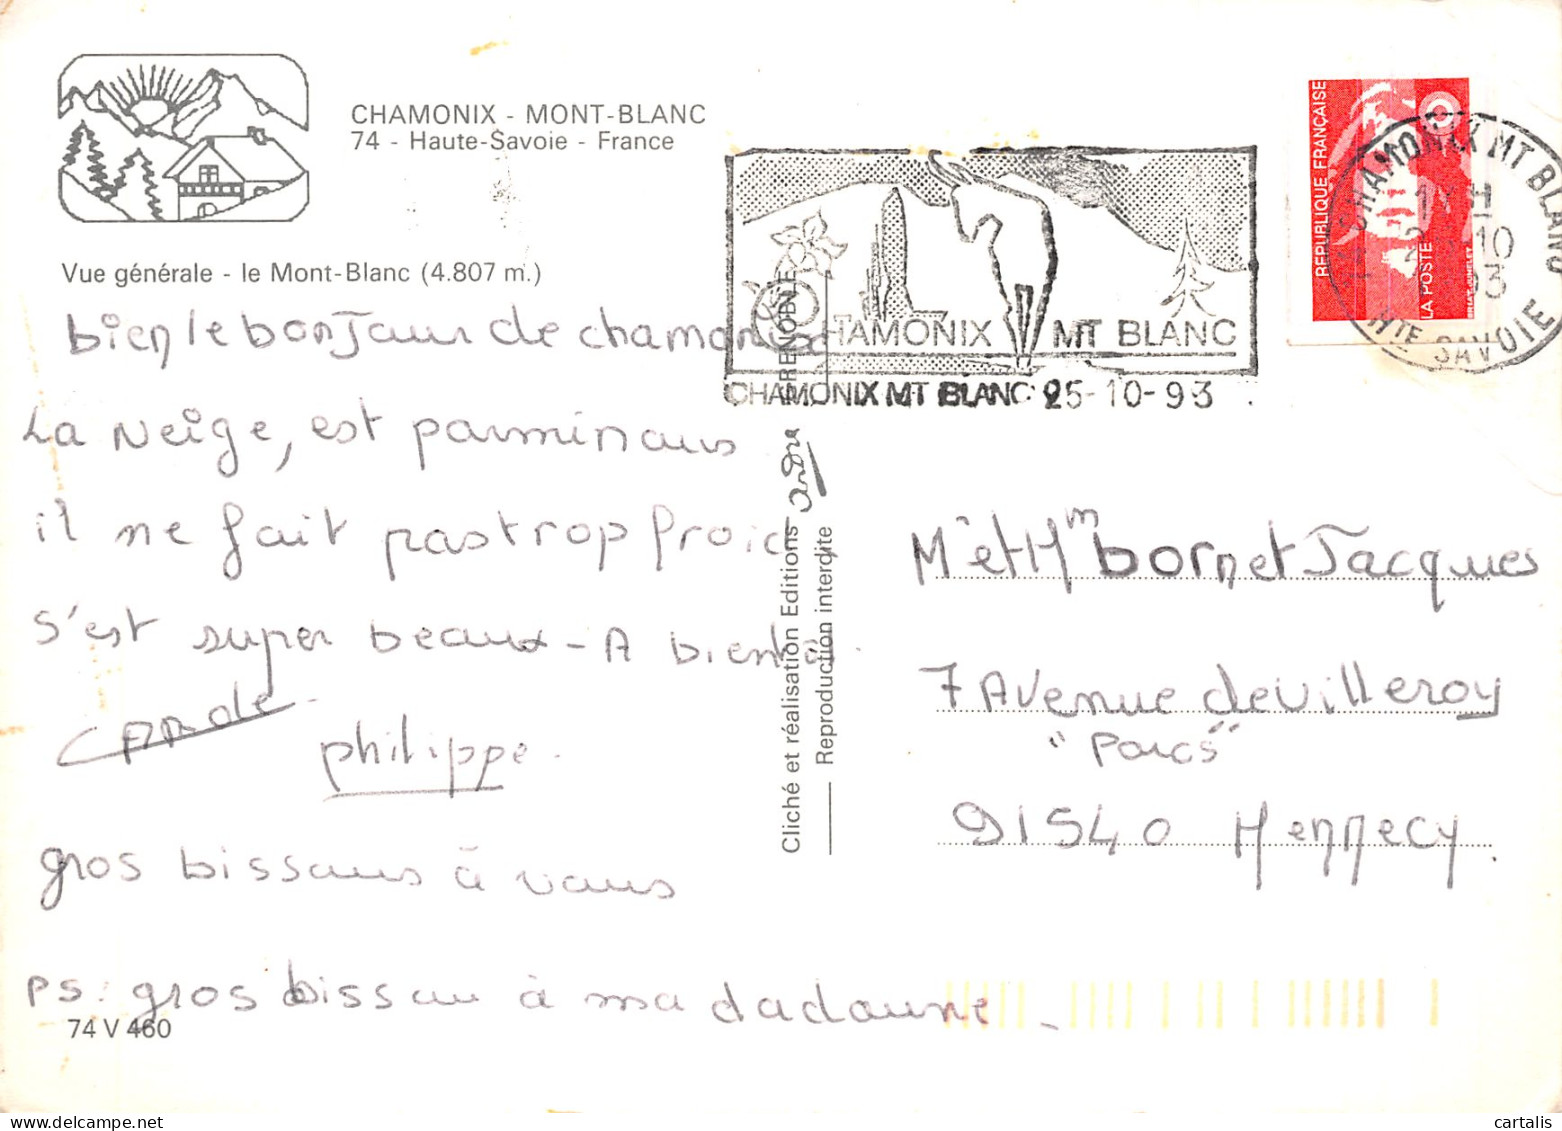 CHAMONIX - MONT-BLANC
74 - Haute-Savoie - France
Vue générale - le Mont-Blanc (4.807 m.)
bien le bonjaur de chamonix
La Neige, est parminaus
il ne fait pastrop froid
s'est super beaux - A bientôt.
philippe.
gros bissaus à vaus
PS: gros bissau à ma dadaune
74 V 460
GRENOBLE
Cliché et réalisation Editions André
Reproduction interdite
CHAMONIX MT BLANC
CHAMONIX MT BLANC 25-10-93
REPUBLIQUE FRANÇAISE
LA POSTE
CHAMONIX MT BLANC
10
93
HTE SAVOIE
Mr et Mm bornet Jacques
7 Avenue de Villeroy
"Parcs"
91540 Mennecy.
cartalis